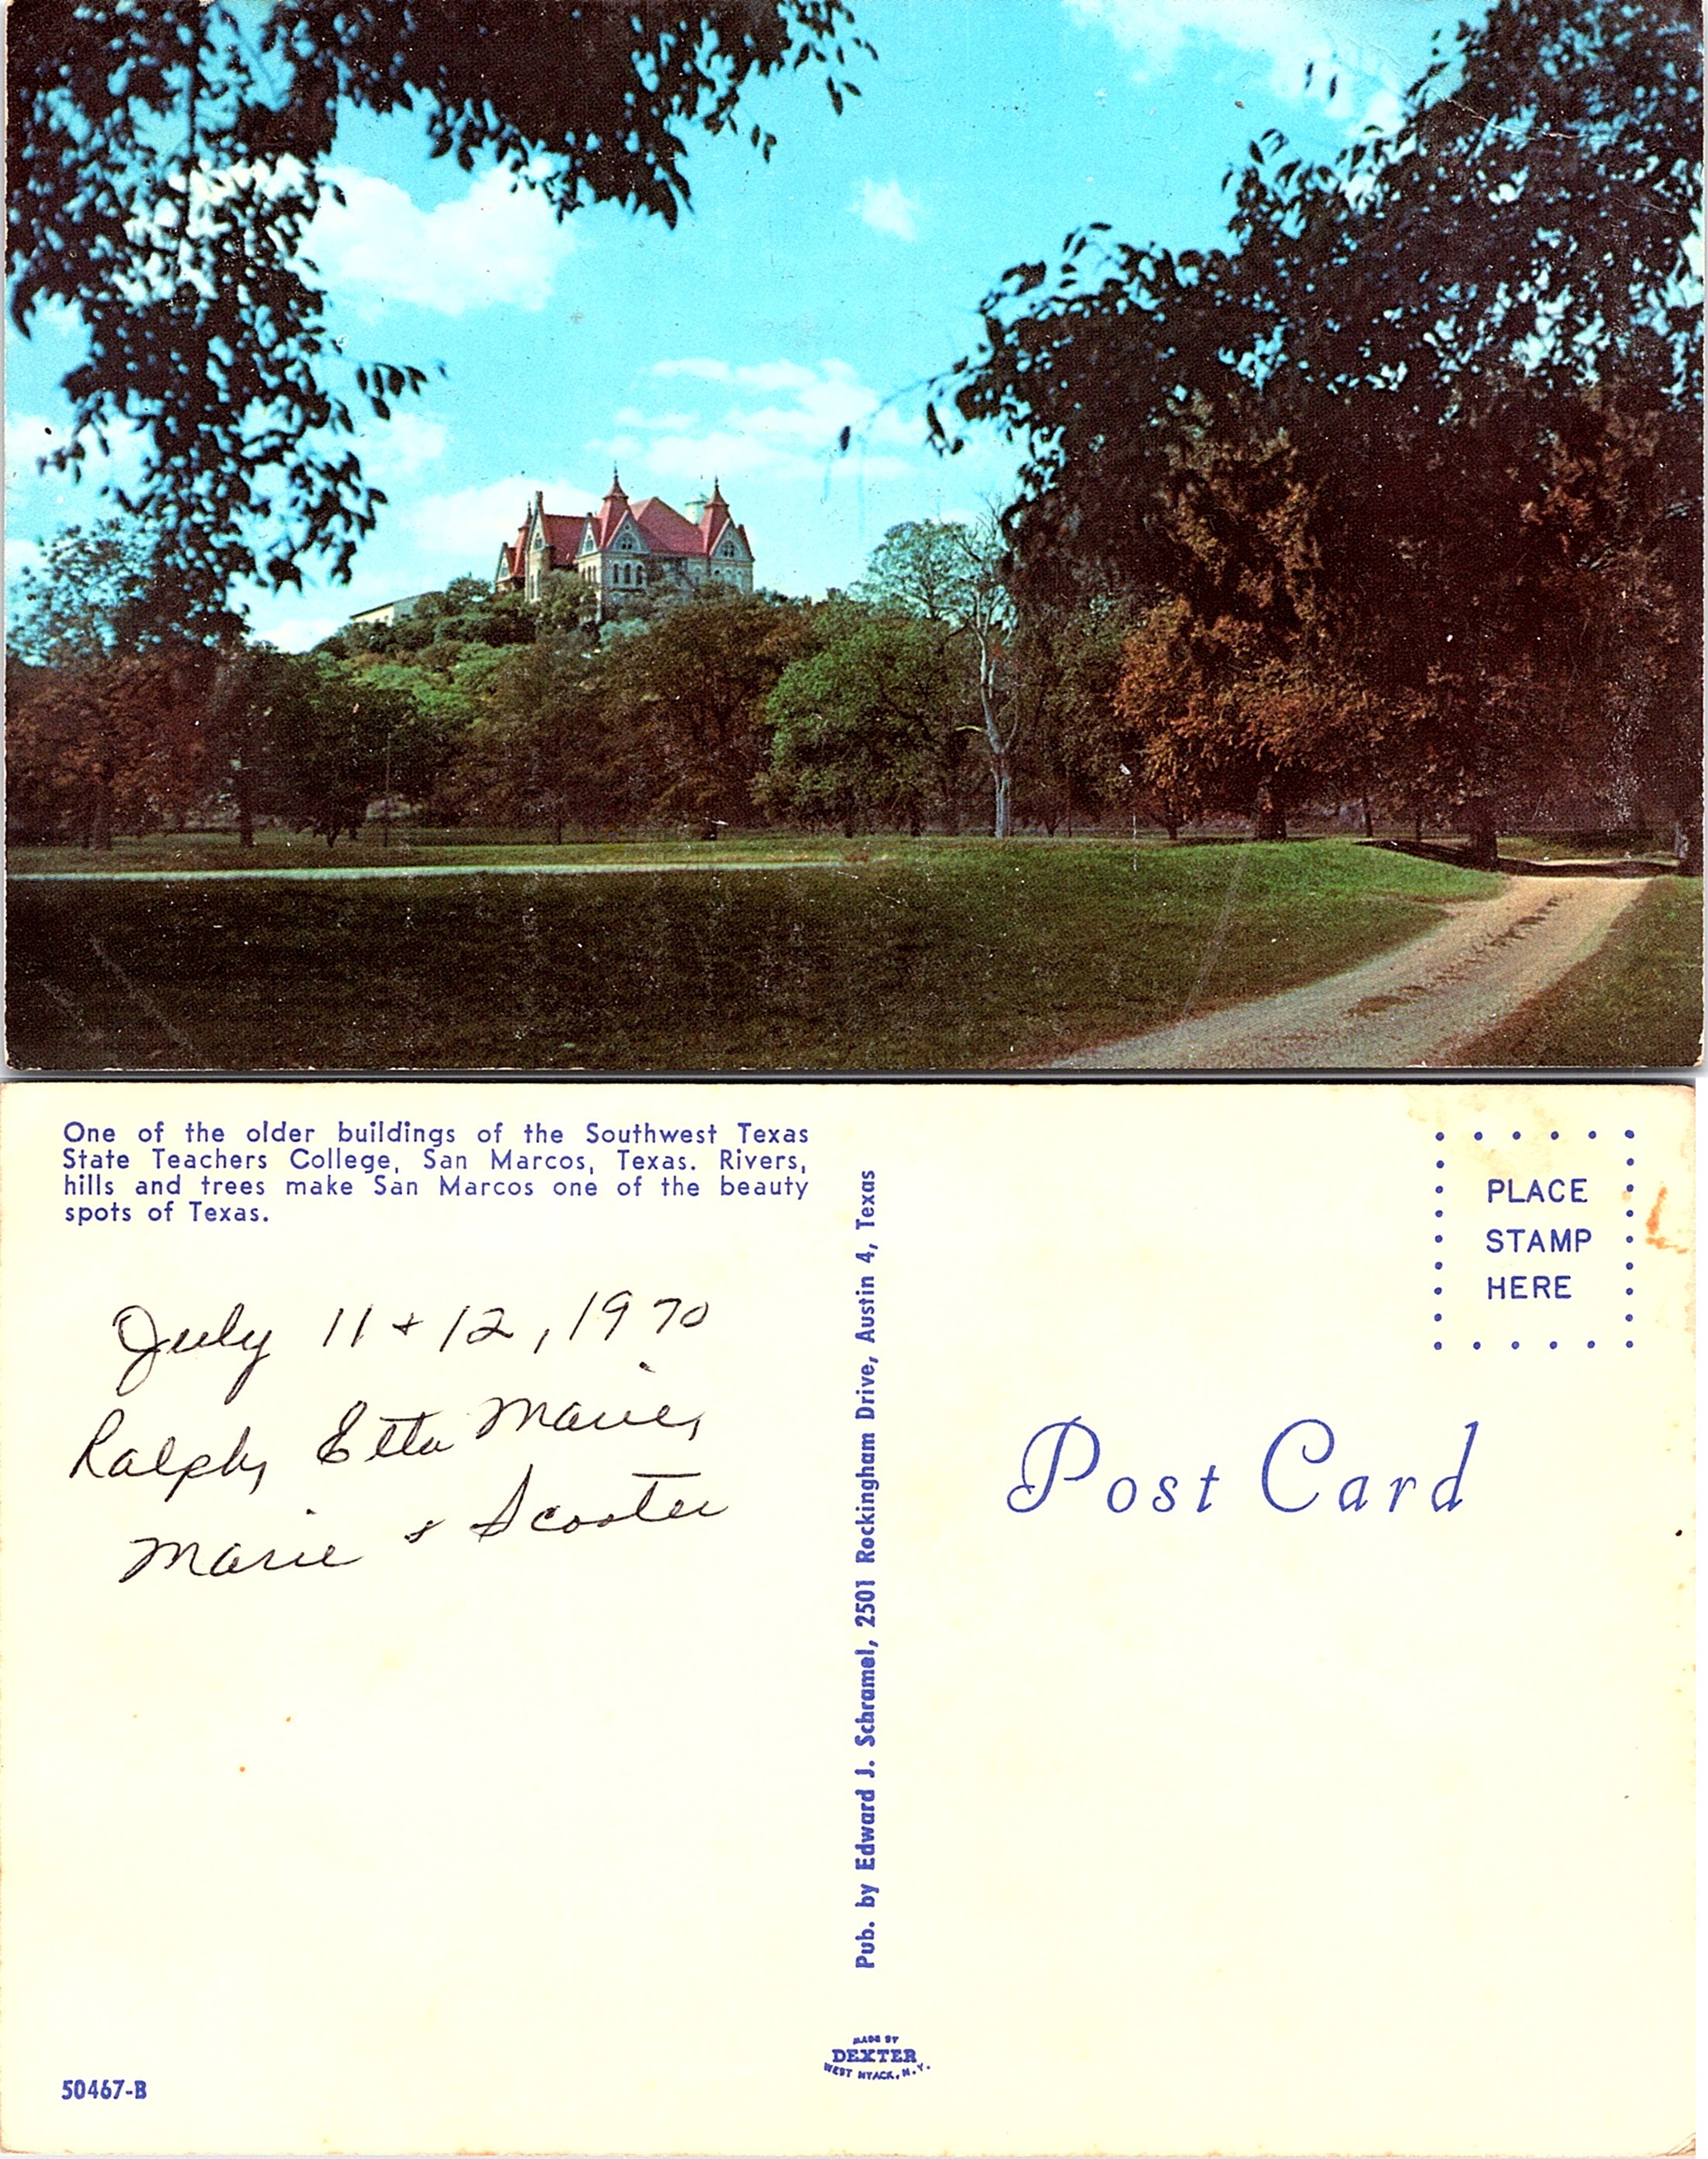 One of the older buildings of the Southwest Texas
State Teachers College, San Marcos, Texas. Rivers,
hills and trees make San Marcos one of the beauty
spots of Texas.
July 11 + 12, 1970
Ralph, Etta Marie,
Marie + Scooter
Pub. by Edward J. Schramel, 2501 Rockingham Drive, Austin 4, Texas
PLACE
STAMP
HERE
Post Card
MADE BY
DEXTER
WEST NYACK, N.Y.
50467-B